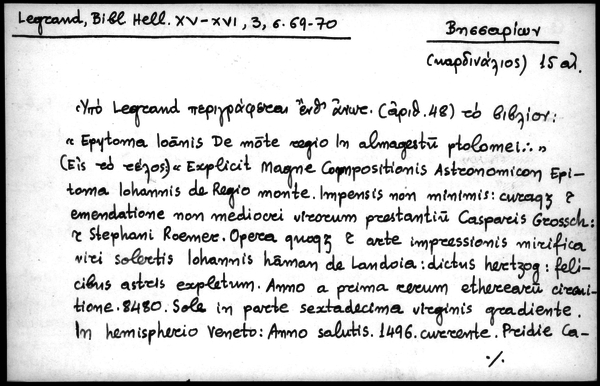 Legrand, Bibl Hell. XV-XVI, 3, σ. 69-70
Βησσαρίων
(καρδινάλιος) 15 αἰ.
Ὑπὸ Legrand περιγράφεται ἔνθ' ἄνωτ. (ἀριθ. 48) τὸ βιβλίον:
« Epytoma Ioānis De mōte regio In almagestū ptolomei.·. »
(Εἰς τὸ τέλος) « Explicit Magne Compositionis Astronomicon Epi-
toma Iohannis de Regio monte. Impensis non minimis: curaqȝ ⁊
emendatione non mediocri virorum prestantiū Casparis Grossch:
⁊ Stephani Roemer. Opera quoqȝ ⁊ arte impressionis mirifica
viri solertis Iohannis hāman de Landoia: dictus hertzog: feli-
cibus astris expletum. Anno a prima rerum etherearū circui-
tione. 8480. Sole in parte sextadecima virginis gradiente.
In hemispherio Veneto: Anno salutis. 1496. currente. Pridie Ca-
·/.